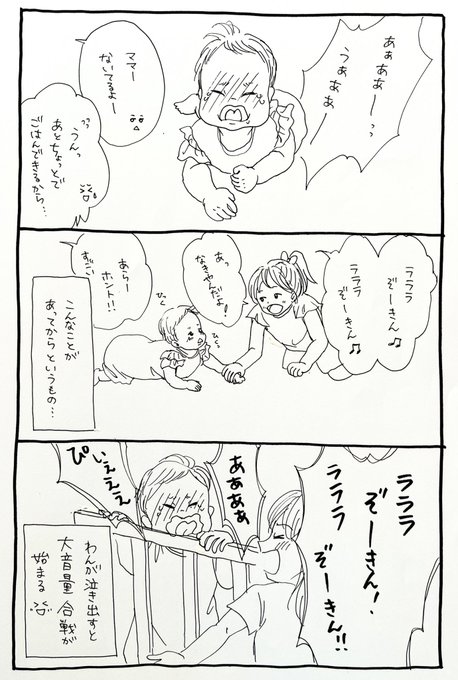 あぁぁあーーっ
うぁぁぁ
ママー
ないてるよー
うんっ
あとちょっとで
ごはんできるから…
ラララ
ぞーきん♪
ラララ
ぞーきん♪
あっ
なきやんだよ!
ひっく
ひくっ
あらー
ホント!!
すごい
こんなことが
あってから というもの…
ラララ
ぞーきん!
ラララ
ぞーきん!!
あぁぁぁ
ぴぃえぇぇ
わんが泣き出すと
大音量 合戦が
始まる